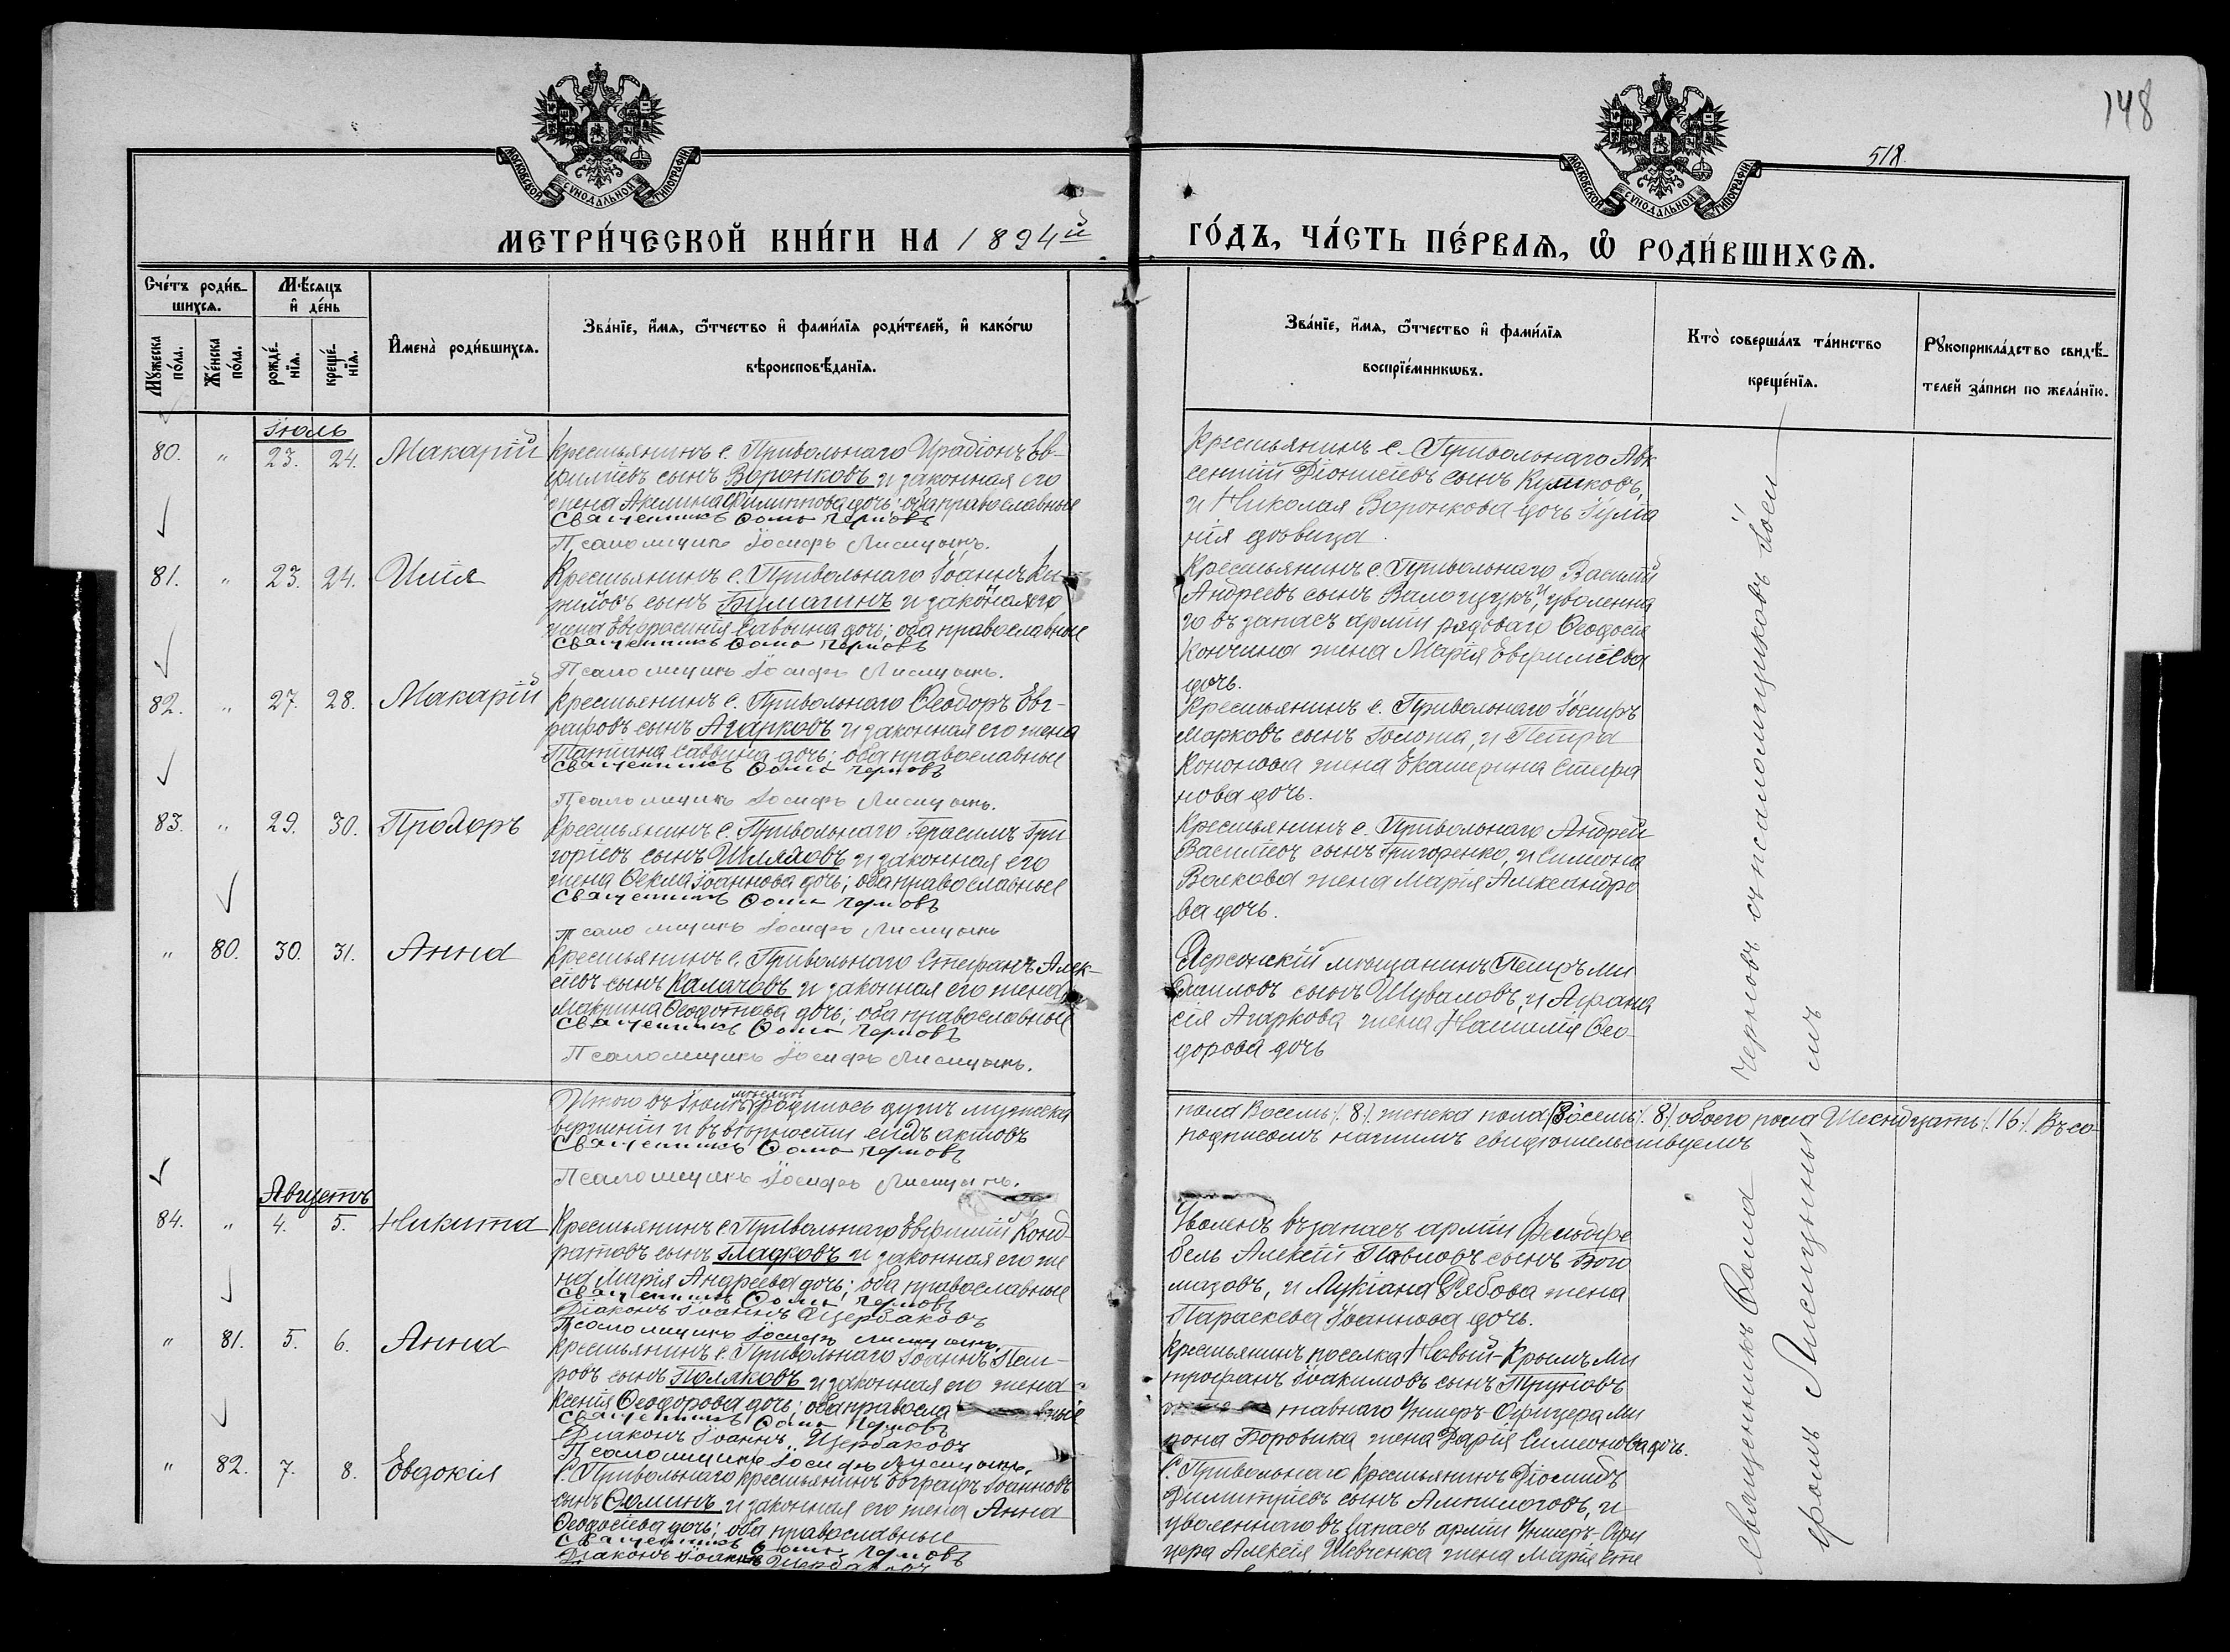 148
518.
МОСКОВСКОЙ СѴНОДАЛЬНОЙ ТИПОГРАФІИ
МОСКОВСКОЙ СѴНОДАЛЬНОЙ ТИПОГРАФІИ
МЕТРИ́ЧЕСКОЙ КНИ́ГИ НА 1894й
ГО́ДЪ, ЧА́СТЬ ПЕ́РВАѦ, Ѡ҆ РОДИ́ВШИХСѦ.
Сче́тъ роди́в-
шихсѧ.
Мꙋ́жеска по́ла.
Же́нска по́ла.
Мѣ́сяцъ
и҆ де́нь
рожде́-
нїѧ.
креще́-
нїѧ.
И҆мена̀ роди́вшихсѧ.
Зва́нїе, и҆́мѧ, ѻ҆́тчество и҆ фами́лїѧ роди́телей, и҆ како́гѡ
вѣроисповѣ́данїѧ.
Зва́нїе, и҆́мѧ, ѻ҆́тчество и҆ фами́лїѧ
воспрїе́мникѡвъ.
Кто̀ соверша́лъ та́инство
креще́нїѧ.
Рꙋкоприкла́дство свидѣ́-
телей за́писи по жела́нїю.
Іюль
80. " 23. 24. Макарій
Крестьянинъ с. Привольнаго Иродіонъ Ев-
фиміевъ сынъ Воронковъ и законная его
жена Акелина Филиппова дочь; оба православные
Священникъ Ѳома Черновъ
Псаломщикъ Іосифъ Лисицынъ.
Крестьянинъ с. Привольнаго Авк
сентій Діонисіевъ сынъ Куликовъ,
и Николая Воронкова дочь Іулиа
нія дѣвица.
81. " 23. 24. Илія
Крестьянинъ с. Привольнаго Іоаннъ Ки-
рилловъ сынъ Бумагинъ и законная его
жена Евфросинія Саввина дочь; оба православные
Священникъ Ѳома Черновъ
Псаломщикъ Іосифъ Лисицынъ.
Крестьянинъ с. Привольнаго Василій
Андреевъ сынъ и уволенна
го въ запасъ арміи рядоваго Ѳеодосія
Кончина жена Марія Евфиміева
дочь.
82. " 27. 28. Макарій
Крестьянинъ с. Привольнаго Ѳеодоръ Евг-
рафовъ сынъ Агарковъ и законная его жена
Татіана Саввина дочь; оба православные
Священникъ Ѳома Черновъ
Псаломщикъ Іосифъ Лисицынъ.
Крестьянинъ с. Привольнаго Іосифъ
Марковъ сынъ и Петра
Кононова жена Екатерина Стефа
нова дочь.
83. " 29. 30. Прохоръ
Крестьянинъ с. Привольнаго Герасимъ Гри
горіевъ сынъ Шляховъ и законная его
жена Ѳекла Іоаннова дочь; оба православные
Священникъ Ѳома Черновъ
Псаломщикъ Іосифъ Лисицынъ
Крестьянинъ с. Привольнаго Андрей
Василіевъ сынъ Григоренко, и Симеона
Волкова жена Марія Александро
ва дочь.
" 80. 30. 31. Анна
Крестьянинъ с. Привольнаго Стефанъ Алек-
сіевъ сынъ Калачовъ и законная его жена
Макрина Ѳеодотова дочь; оба православные
Священникъ Ѳома Черновъ
Псаломщикъ Іосифъ Лисицынъ.
мѣщанинъ Петръ Ми
хаиловъ сынъ Шуваловъ, и Афана
сія Агаркова жена Наталія Ѳео-
дорова дочь
Итого въ Іюлѣ мѣсяцѣ родилось душъ мужеска
пола Восемь /. 8 /. женска пола Восемь /. 8 /. обоего пола Шестнадцать /. 16 /. Въ со-
вершеніи и въ вѣрности сихъ актовъ
подписомъ нашимъ свидѣтельствуемъ
Священникъ Ѳома Черновъ
Псаломщикъ Іосифъ Лисицынъ.
Августъ
84. " 4. 5. Никита
Крестьянинъ с. Привольнаго Евфимій Конд-
ратовъ сынъ Гладковъ и законная его же
на Марія Андреева дочь; оба православные
Священникъ Ѳома Черновъ
Діаконъ Іоаннъ Щербаковъ
Псаломщикъ Іосифъ Лисицынъ.
Уволенъ въ запасъ арміи Фельдфе
бель Алексій Павловъ сынъ Бого
мазовъ, и Лукіана Рябова жена
Параскева Іоаннова дочь.
" 81. 5. 6. Анна
Крестьянинъ с. Привольнаго Іоаннъ Пет-
ровъ сынъ Поляковъ и законная его жена
Ксенія Ѳеодорова дочь; оба правосла вные
Священникъ Ѳома Черновъ
Діаконъ Іоаннъ Щербаковъ
Псаломщикъ Іосифъ Лисицынъ.
Крестьянинъ поселка Новый-Крымъ Ми
трофанъ Іоакимовъ сынъ Труновъ
тавнаго Унтеръ-Офицера Ми
рона Боровика жена Дарія Симеонова дочь.
" 82. 7. 8. Евдокія
С. Привольнаго крестьянинъ Евграфъ Іоанновъ
сынъ Ѳоминъ и законная его жена Анна
Ѳеодосіева дочь; оба православные
Священникъ Ѳома Черновъ
Діаконъ Іоаннъ Щербаковъ
С. Привольнаго крестьянинъ Діомидъ
Димитріевъ сынъ Ампилоговъ, и
уволеннаго въ запасъ арміи Унтеръ-Офи
цера Алексія Шевченка жена Марія Сте
Священникъ Ѳома Черновъ съ псаломщикомъ Іоси
фомъ Лисицынымъ